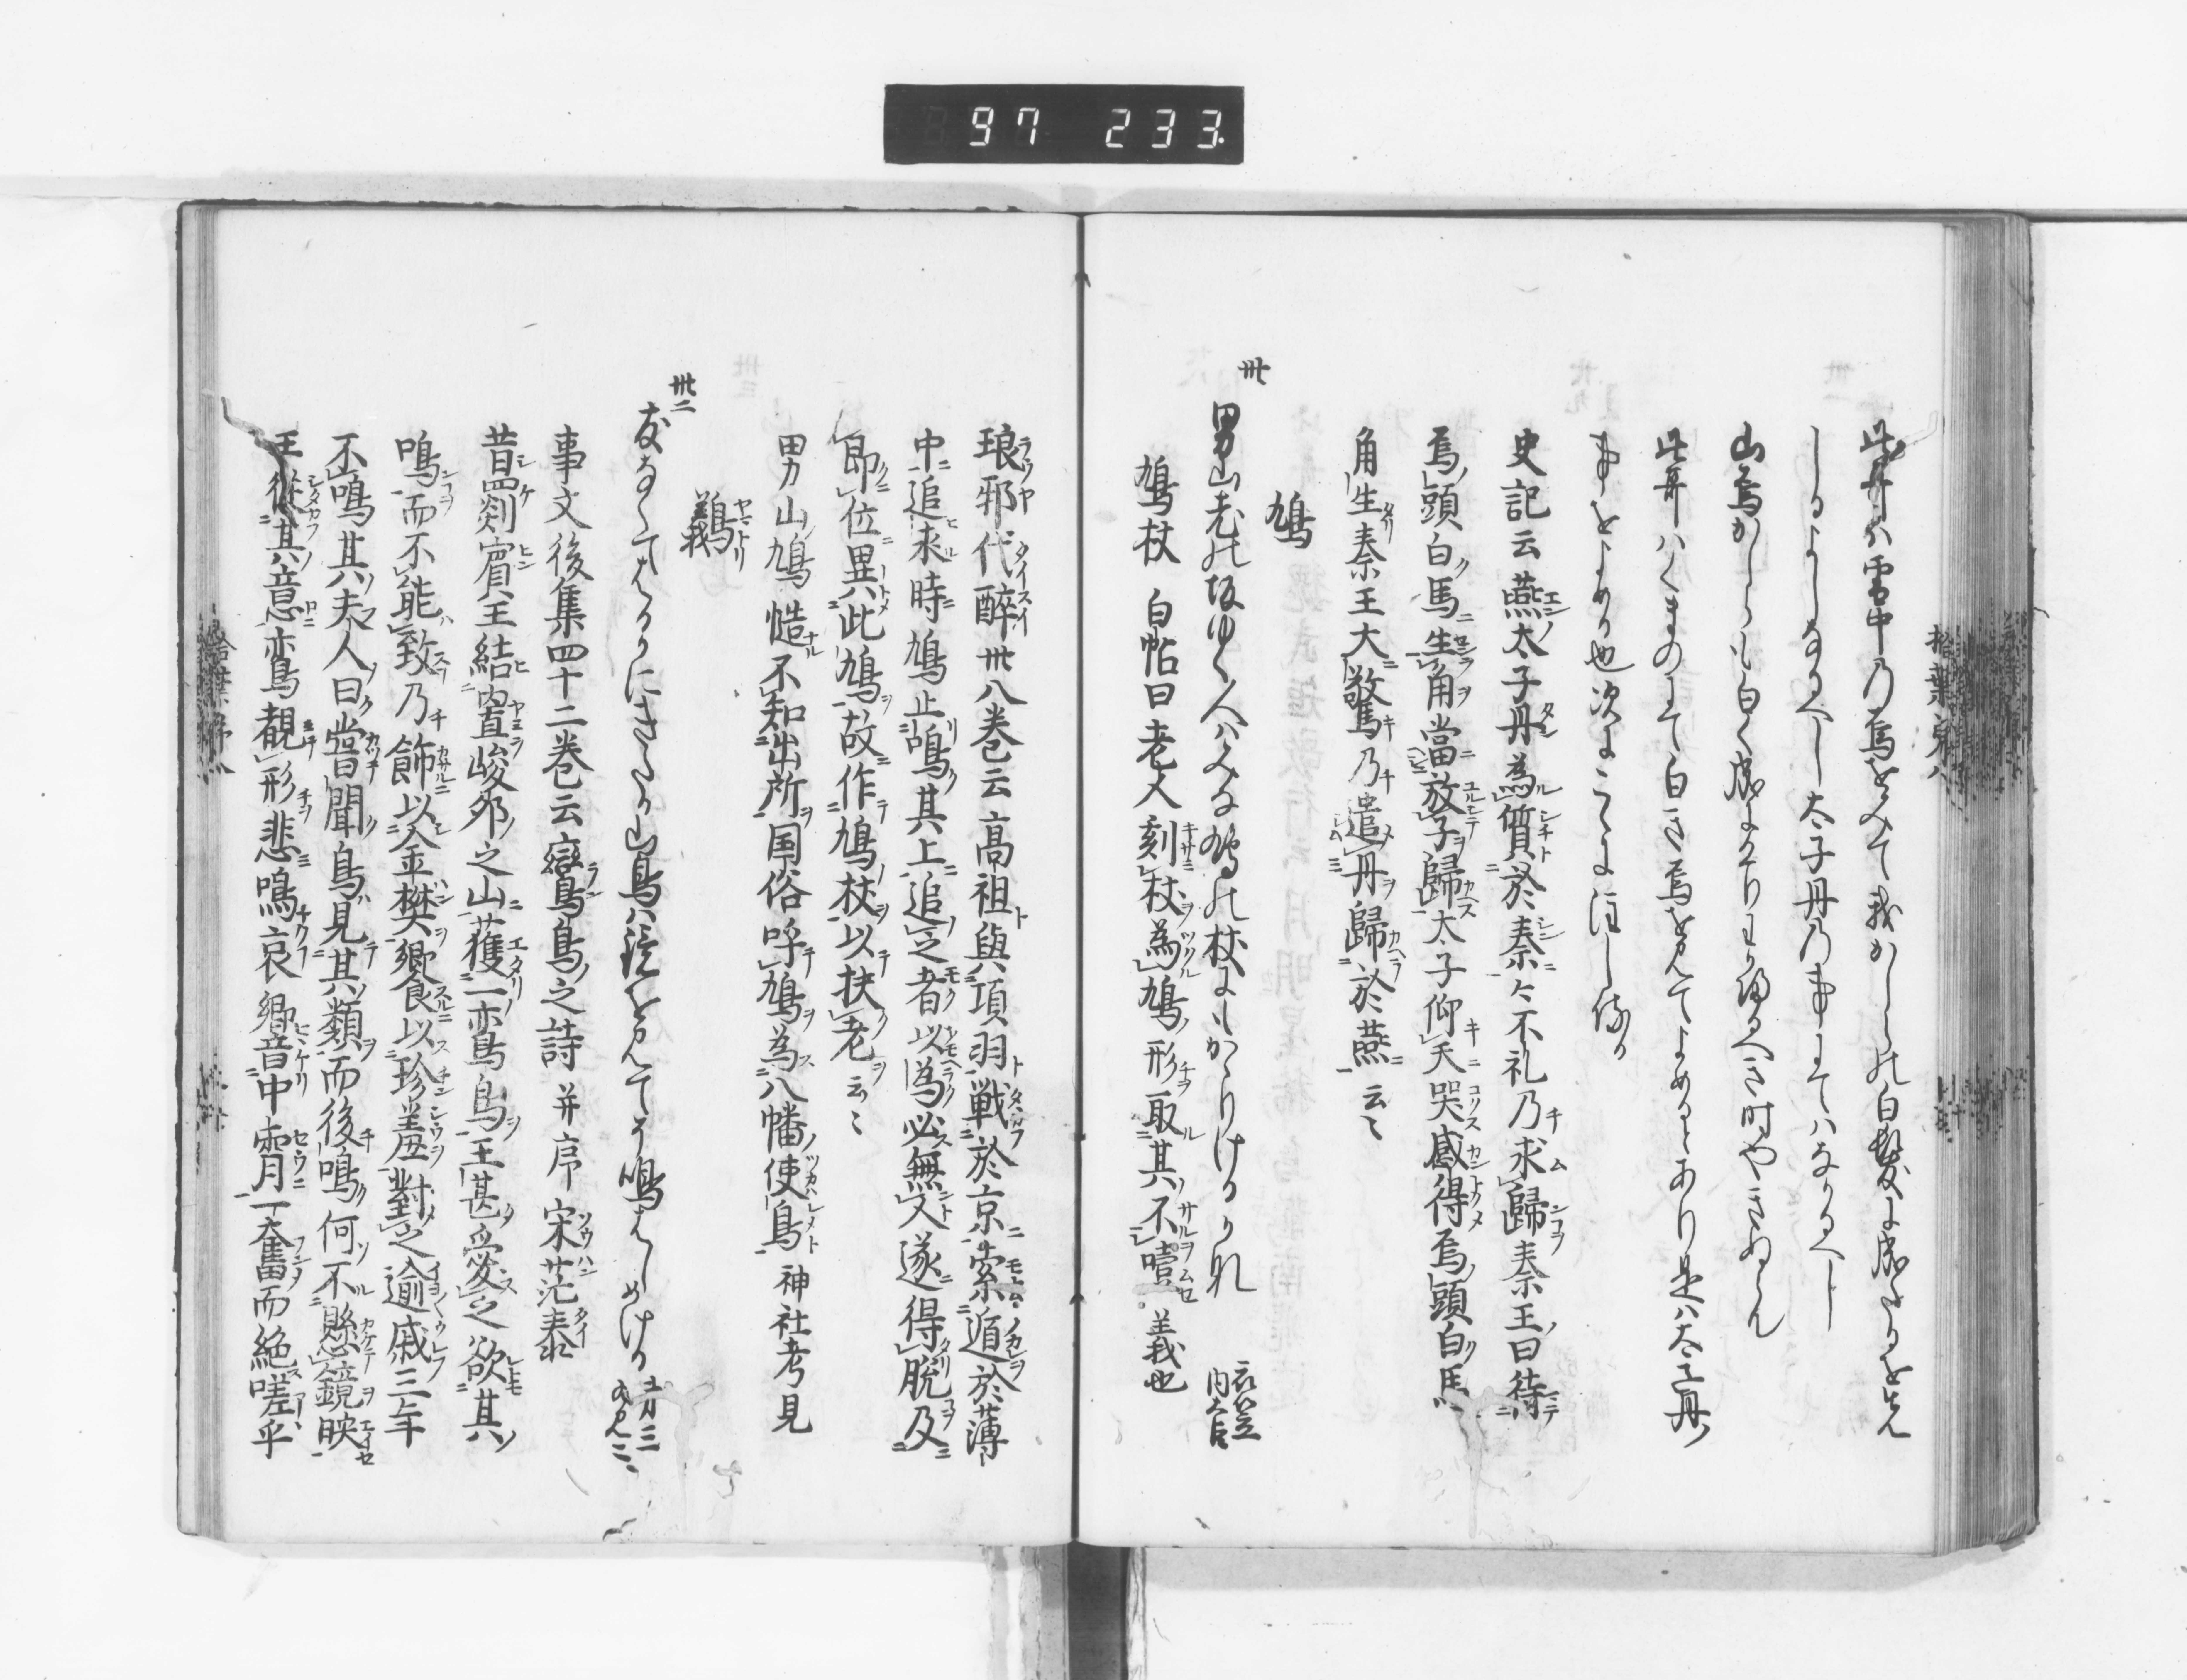 97 233
此哥ハ雪中乃烏をみて我かしらの白髪に成たるを
しるよしなるへし太子丹乃事にてハなかるへし
山烏かしらも白く成にけりわか帰るへき時やきぬらん
此哥ハくまのにて白き烏を見てよめるとあり是ハ太子丹
事をよめる也次にこゝに注し侍る
史記云燕太子丹為質於秦々不礼乃求歸秦王曰待
烏頭白馬生角當放子歸太子仰天哭感得烏頭白馬
角生秦王大驚乃遣丹歸於燕云々
鳩
卅
男山老の坂ゆく人ハみな鳩の杖にもかゝりけるかな 衣笠内大臣
鳩杖 白帖曰老人刻杖為鳩形取其不噎義也
琅邪代醉卅八巻云高祖與項羽戦於京索遁於薄
中追来時鳩止鳴其上追之者以為必無人遂得脱及
即位異此鳩故作鳩杖以扶老云々
男山鳩 慥不知出所国俗呼鳩為八幡使鳥神社考見
鸐
卅二
友なくてはるかにきたる山鳥ハ鏡を見てそ鳴はしめける
事文後集四十二巻云鸞鳥之詩并序 宋范泰
昔罽賓王結罝峻夘之山獲一鸞鳥王甚愛之欲其
鳴而不能致乃飾以金樊饗以珍羞對之逾戚三年
不鳴其夫人曰嘗聞鳥見其類而後鳴何不懸鏡映
王從其意鸞覩形悲鳴哀響中霄一奮而絶嗟乎